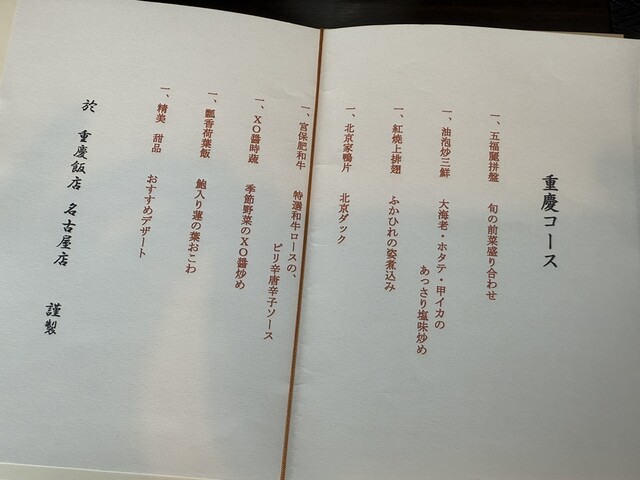 重慶コース
一、五福麗拼盤 旬の前菜盛り合わせ
一、油泡炒三鮮 大海老・ホタテ・甲イカの
あっさり塩味炒め
一、紅燒上排翅 ふかひれの姿煮込み
一、北京家鴨片 北京ダック
一、宮保肥和牛 特選和牛ロースの、
ピリ辛唐辛子ソース
一、XO醬時蔬 季節野菜のXO醬炒め
一、瓢香荷葉飯 鮑入り蓮の葉おこわ
一、精美 甜品 おすすめデザート
於 重慶飯店 名古屋店 謹製